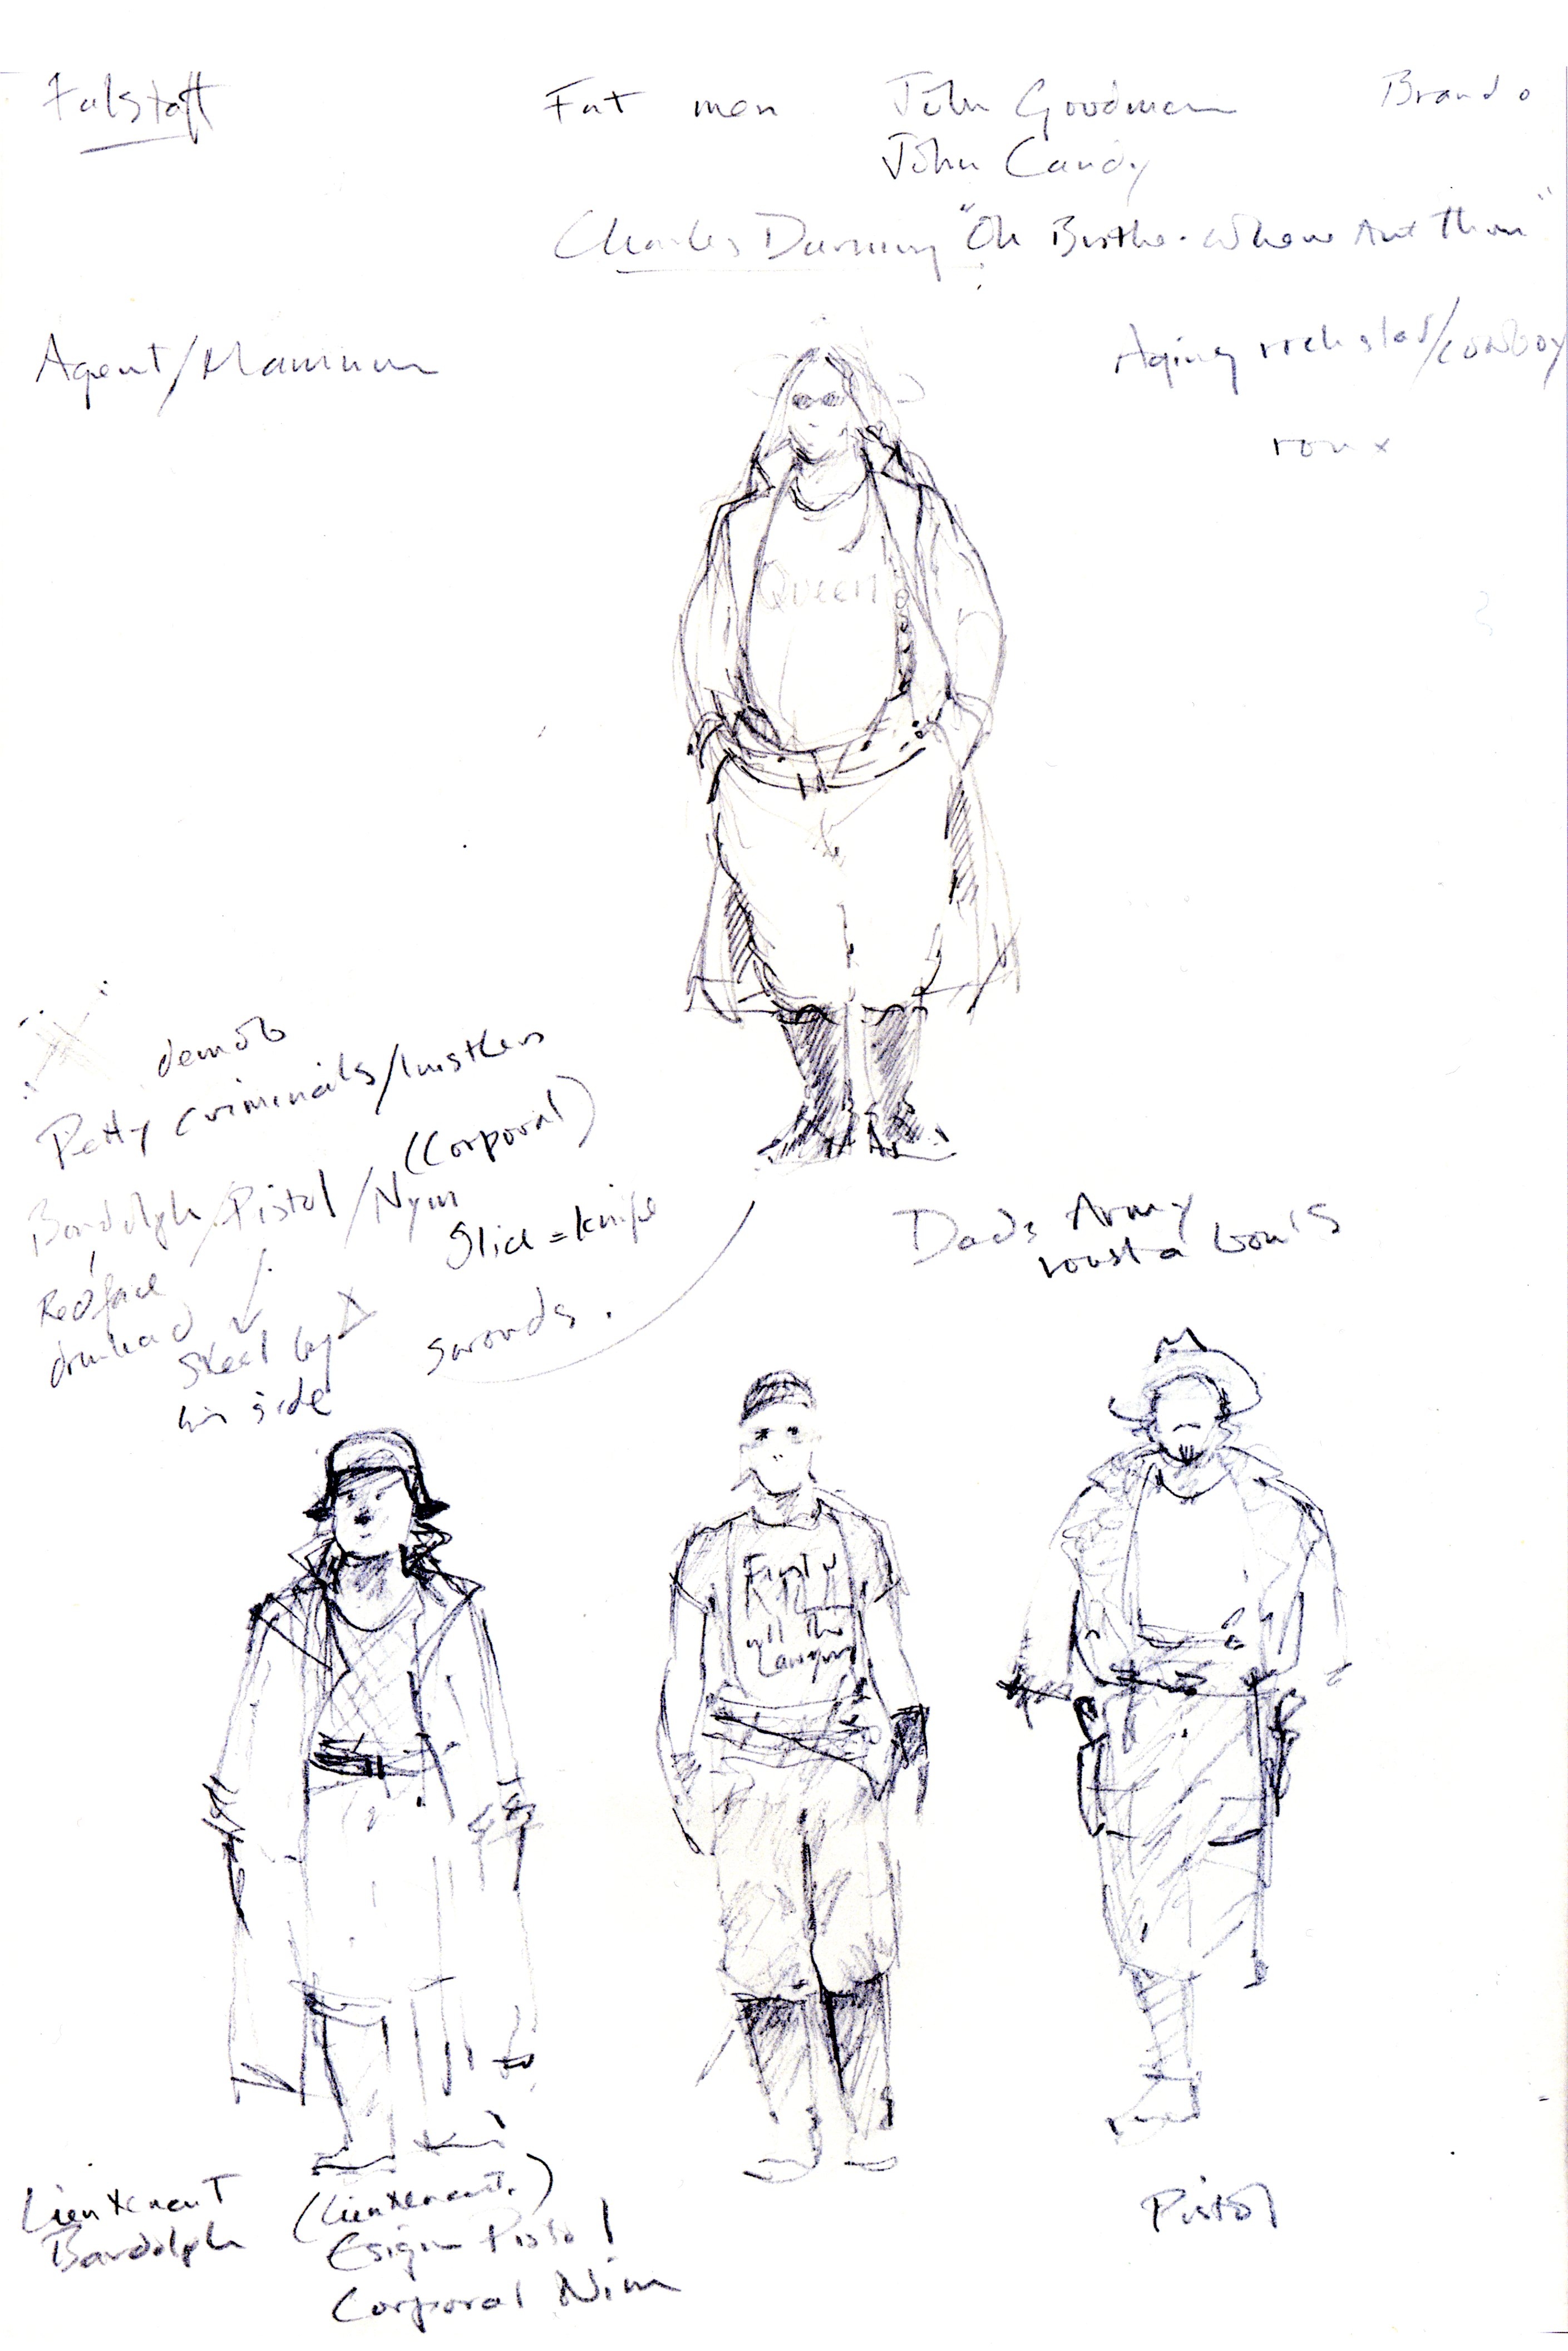 Falstaff
Fat men John Goodman Brando
John Candy
Charles Durning "Oh Brother Where Art Thou"
Agent/
Aging rock star/cowboy
Queen
demob
Petty criminals/hustlers
(Corporal)
Bardolph/Pistol/Nym
Slice = knife
Red face
drunkad
steel by
his side
swords.
Dads Army
Firsty
Kill
all the
Lawyers
Lieutenant
Bardolph
(Lieutenant.)
Esign Pistol
Corporal Nim
Pistol